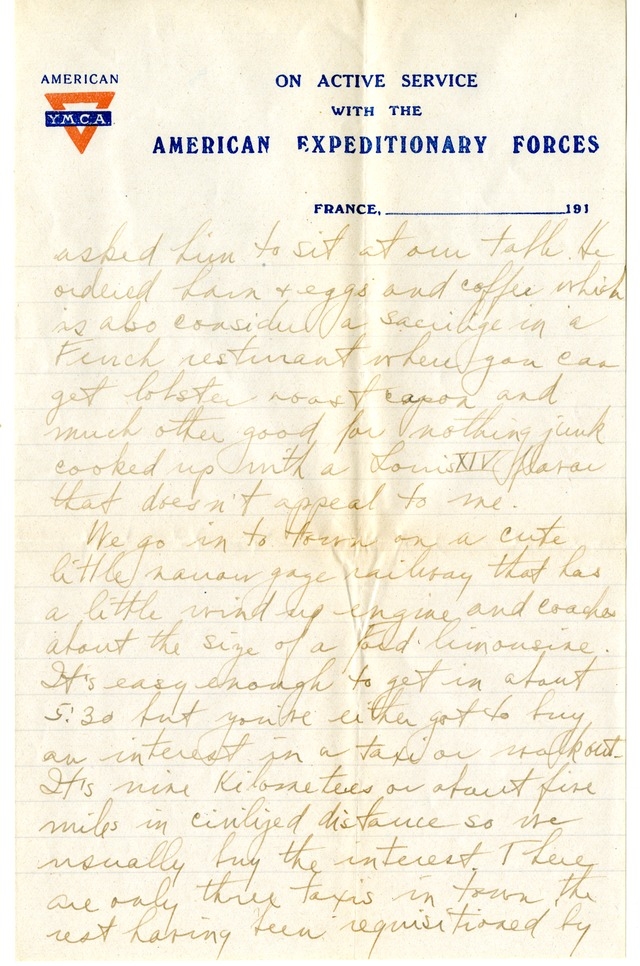 AMERICAN
Y.M.C.A.
ON ACTIVE SERVICE
WITH THE
AMERICAN EXPEDITIONARY FORCES
FRANCE, 191
asked him to sit at our table. He
ordered ham & eggs and coffee which
is also consider a sacrilage in a
French resturant where you can
get lobster roast capon and
much other good for nothing junk
cooked up with a Louis XIV flavor
that doesn't appeal to me.
We go in to town on a cute
little narrow gage railway that has
a little wind up engine and coaches
about the size of a Ford limousine.
It's easy enough to get in about
5:30 but you've either got to buy
an interest in a taxi or walk out.
It's nine Kilometers or about five
miles in civilized distance so we
usually buy the interest. There
are only three taxis in town the
rest having been requisitioned by